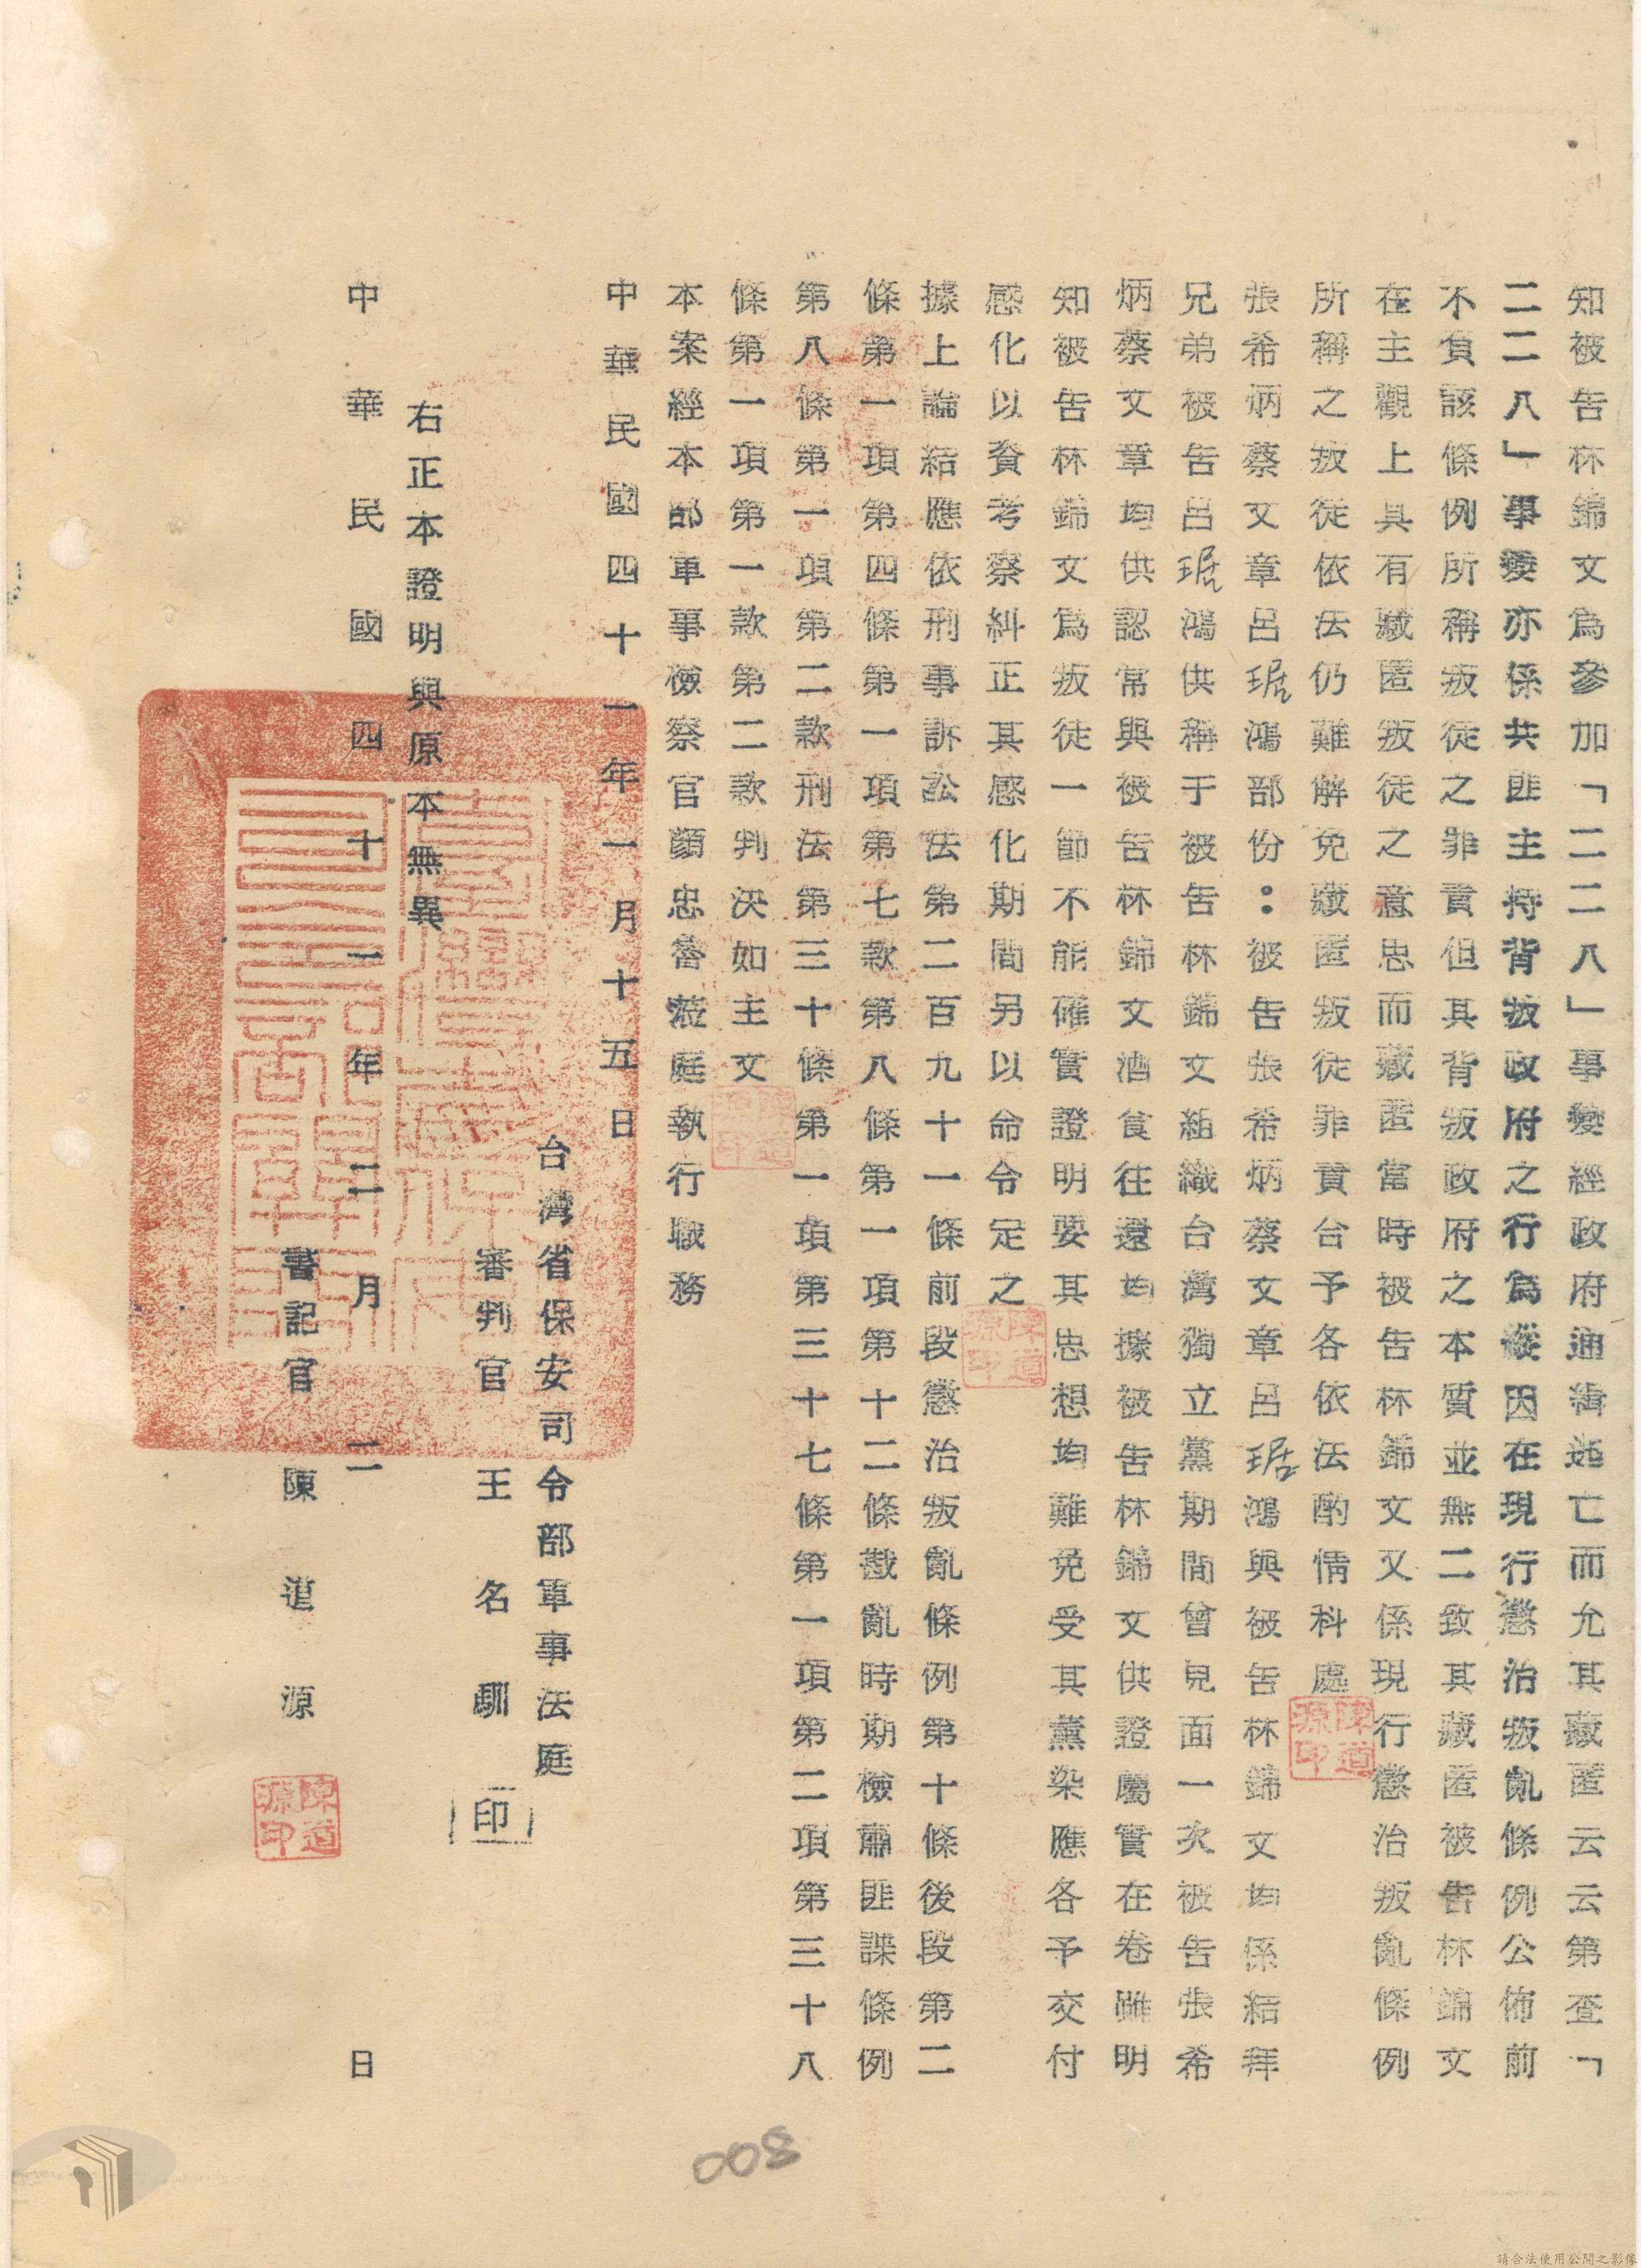 知被告林錦文為參加「二二八」事變經政府通緝逃亡而允其藏匿云云第查「
二二八」事變亦係共匪主持背叛政府之行為縱因在現行懲治叛亂條例公佈前
不負該條例所稱叛徒之罪責但其背叛政府之本質並無二致其藏匿被告林錦文
在主觀上具有藏匿叛徒之意思而藏匿當時被告林錦文又係現行懲治叛亂條例
所稱之叛徒依法仍難解免藏匿叛徒罪責台予各依法酌情科處
張希炳蔡文章呂琚鴻部份：被告張希炳蔡文章呂琚鴻與被告林錦文均係結拜
兄弟被告呂琚鴻供稱于被告林錦文組織台灣獨立黨期間曾見面一次被告張希
炳蔡文章均供認常與被告林錦文酒食往還均據被告林錦文供證屬實在卷雖明
知被告林錦文為叛徒一節不能確實證明要其思想均難免受其薰染應各予交付
感化以資考察糾正其感化期間另以命令定之
據上論結應依刑事訴訟法第二百九十一條前段懲治叛亂條例第十條後段第二
條第一項第四條第一項第七款第八條第一項第十二條戡亂時期檢肅匪諜條例
第八條第一項第二款刑法第三十條第一項第三十七條第一項第二項第三十八
條第一項第一款第二款判決如主文
本案經本部軍事檢察官顏忠魯蒞庭執行職務
中華民國四十一年一月十五日
台灣省保安司令部軍事法庭
審判官 王名馴 印
右正本證明與原本無異
中華民國四十一年二月二日
書記官 陳道源
陳道源印
008
請合法使用公開之影像